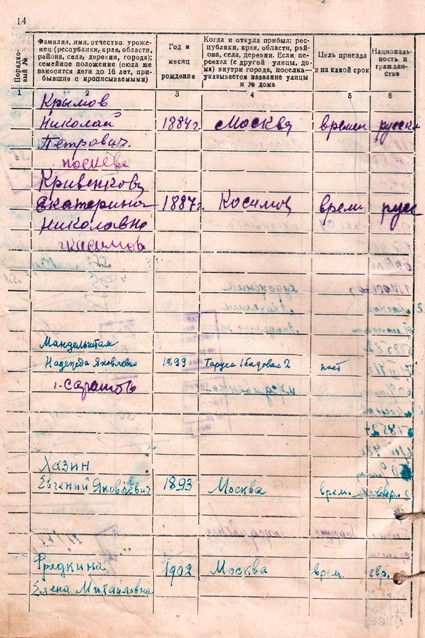 14
Порядковый №
Фамилия, имя, отчество, уроженец (республики, края, области, района, села, деревни, города); семейное положение (сюда же заносятся дети до 16 лет, прибывшие с прописываемыми)
Год и месяц рождения
Когда и откуда прибыл: республики, края, области, района, села, деревни. Если переехал (с другой улицы, дома) внутри города, поселка — указывается название улицы и № дома
Цель приезда и на какой срок
Национальность и гражданство
1 2 3 4 5 6
Крымов
Николай 1884г. Москва времен русск
Петрович.
Кривенкова
Екатерина 1887г Косимов врем. русс
Николаевна
г Касимов
Мандельштам
Надежда Яковлевна 1899 Таруса 1 Садовая 2 пост
г. Саратов
Хазин
Евгений Яковлевич 1893 Москва врем.
Фрадкина 1902 Москва врем. евр.
Елена Михайловна